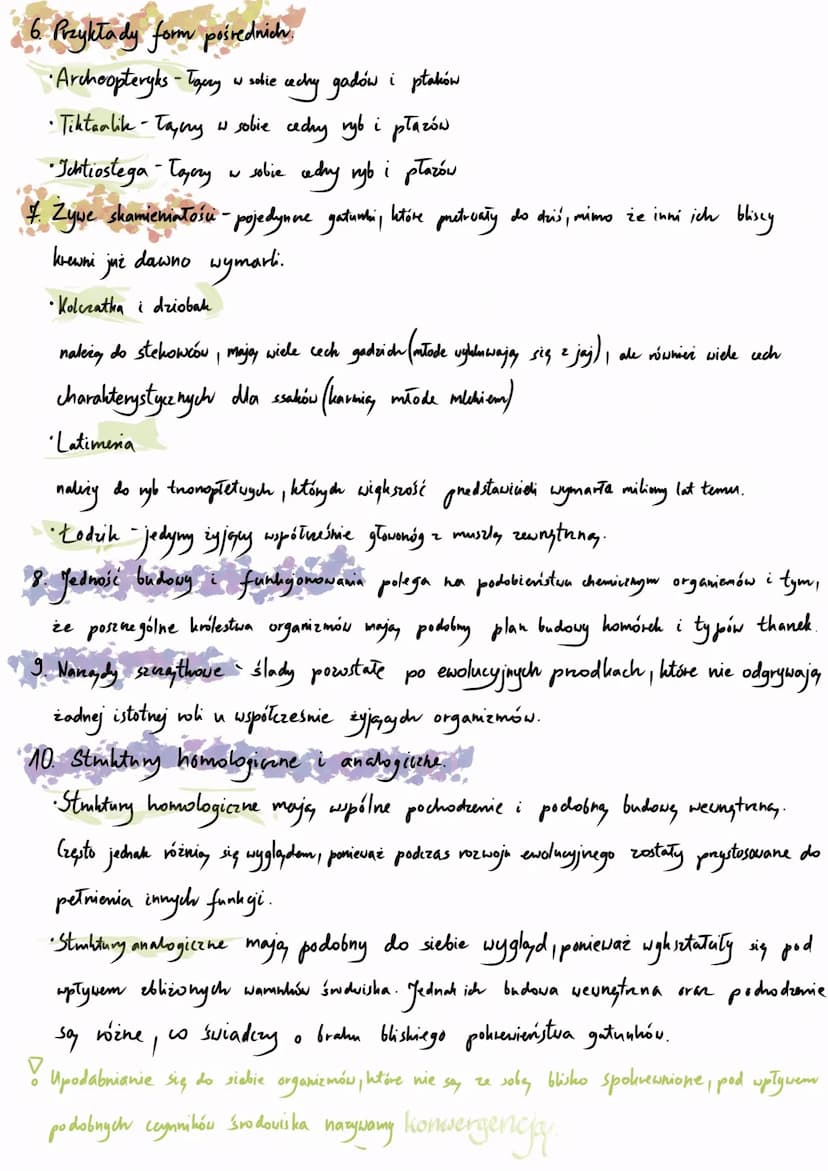 6. Przykłady form pośrednich.
• Archeopteryks - łączy w sobie cechy gadów i ptaków
• Tiktaalik - łączy w sobie cechy ryb i płazów
• Ichtiostega - łączy w sobie cechy ryb i płazów
7. Żywe skamieniałości - pojedyncze gatunki, które przetrwały do dziś, mimo że inni ich bliscy
krewni już dawno wymarli.
• Kolczatka i dziobak
należą do stekowców, mają wiele cech gadzich (młode wykluwają się z jaj), ale również wiele cech
charakterystycznych dla ssaków (karmią młode mlekiem)
• Latimeria
należy do ryb trzonopłetwych, których większość przedstawicieli wymarła miliony lat temu.
• Łodzik - jedyny żyjący współcześnie głowonóg z muszlą zewnętrzną.
8. Jedność budowy i funkcjonowania polega na podobieństwu chemicznym organizmów i tym,
że poszczególne królestwa organizmów mają podobny plan budowy komórek i typów tkanek.
9. Narządy szczątkowe - ślady pozostałe po ewolucyjnych przodkach, które nie odgrywają
żadnej istotnej roli u współcześnie żyjących organizmów.
10. Struktury homologiczne i analogiczne.
• Struktury homologiczne mają wspólne pochodzenie i podobną budowę wewnętrzną.
Często jednak różnią się wyglądem, ponieważ podczas rozwoju ewolucyjnego zostały przystosowane do
pełnienia innych funkcji.
• Struktury analogiczne mają podobny do siebie wygląd, ponieważ wykształciły się pod
wpływem zbliżonych warunków środwiska. Jednak ich budowa wewnętrzna oraz pochodzenie
są różne, co świadczy o braku bliskiego pokrewieństwa gatunków.
! Upodabnianie się do siebie organizmów, które nie są ze sobą blisko spokrewnione, pod wpływem
podobnych czynników środowiska nazywamy konwergencją.